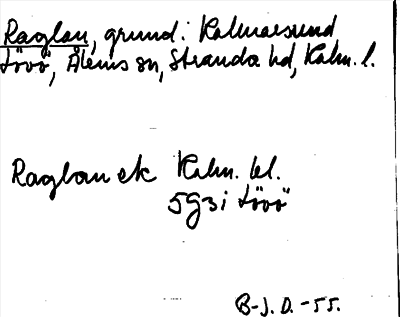 Raglan, grund i Kalmarsund
Lövö, Ålems sn, Stranda hd, Kalm. l.
Raglan ek Kalm. bl.
5G3i Lövö
B-J. D. -55.